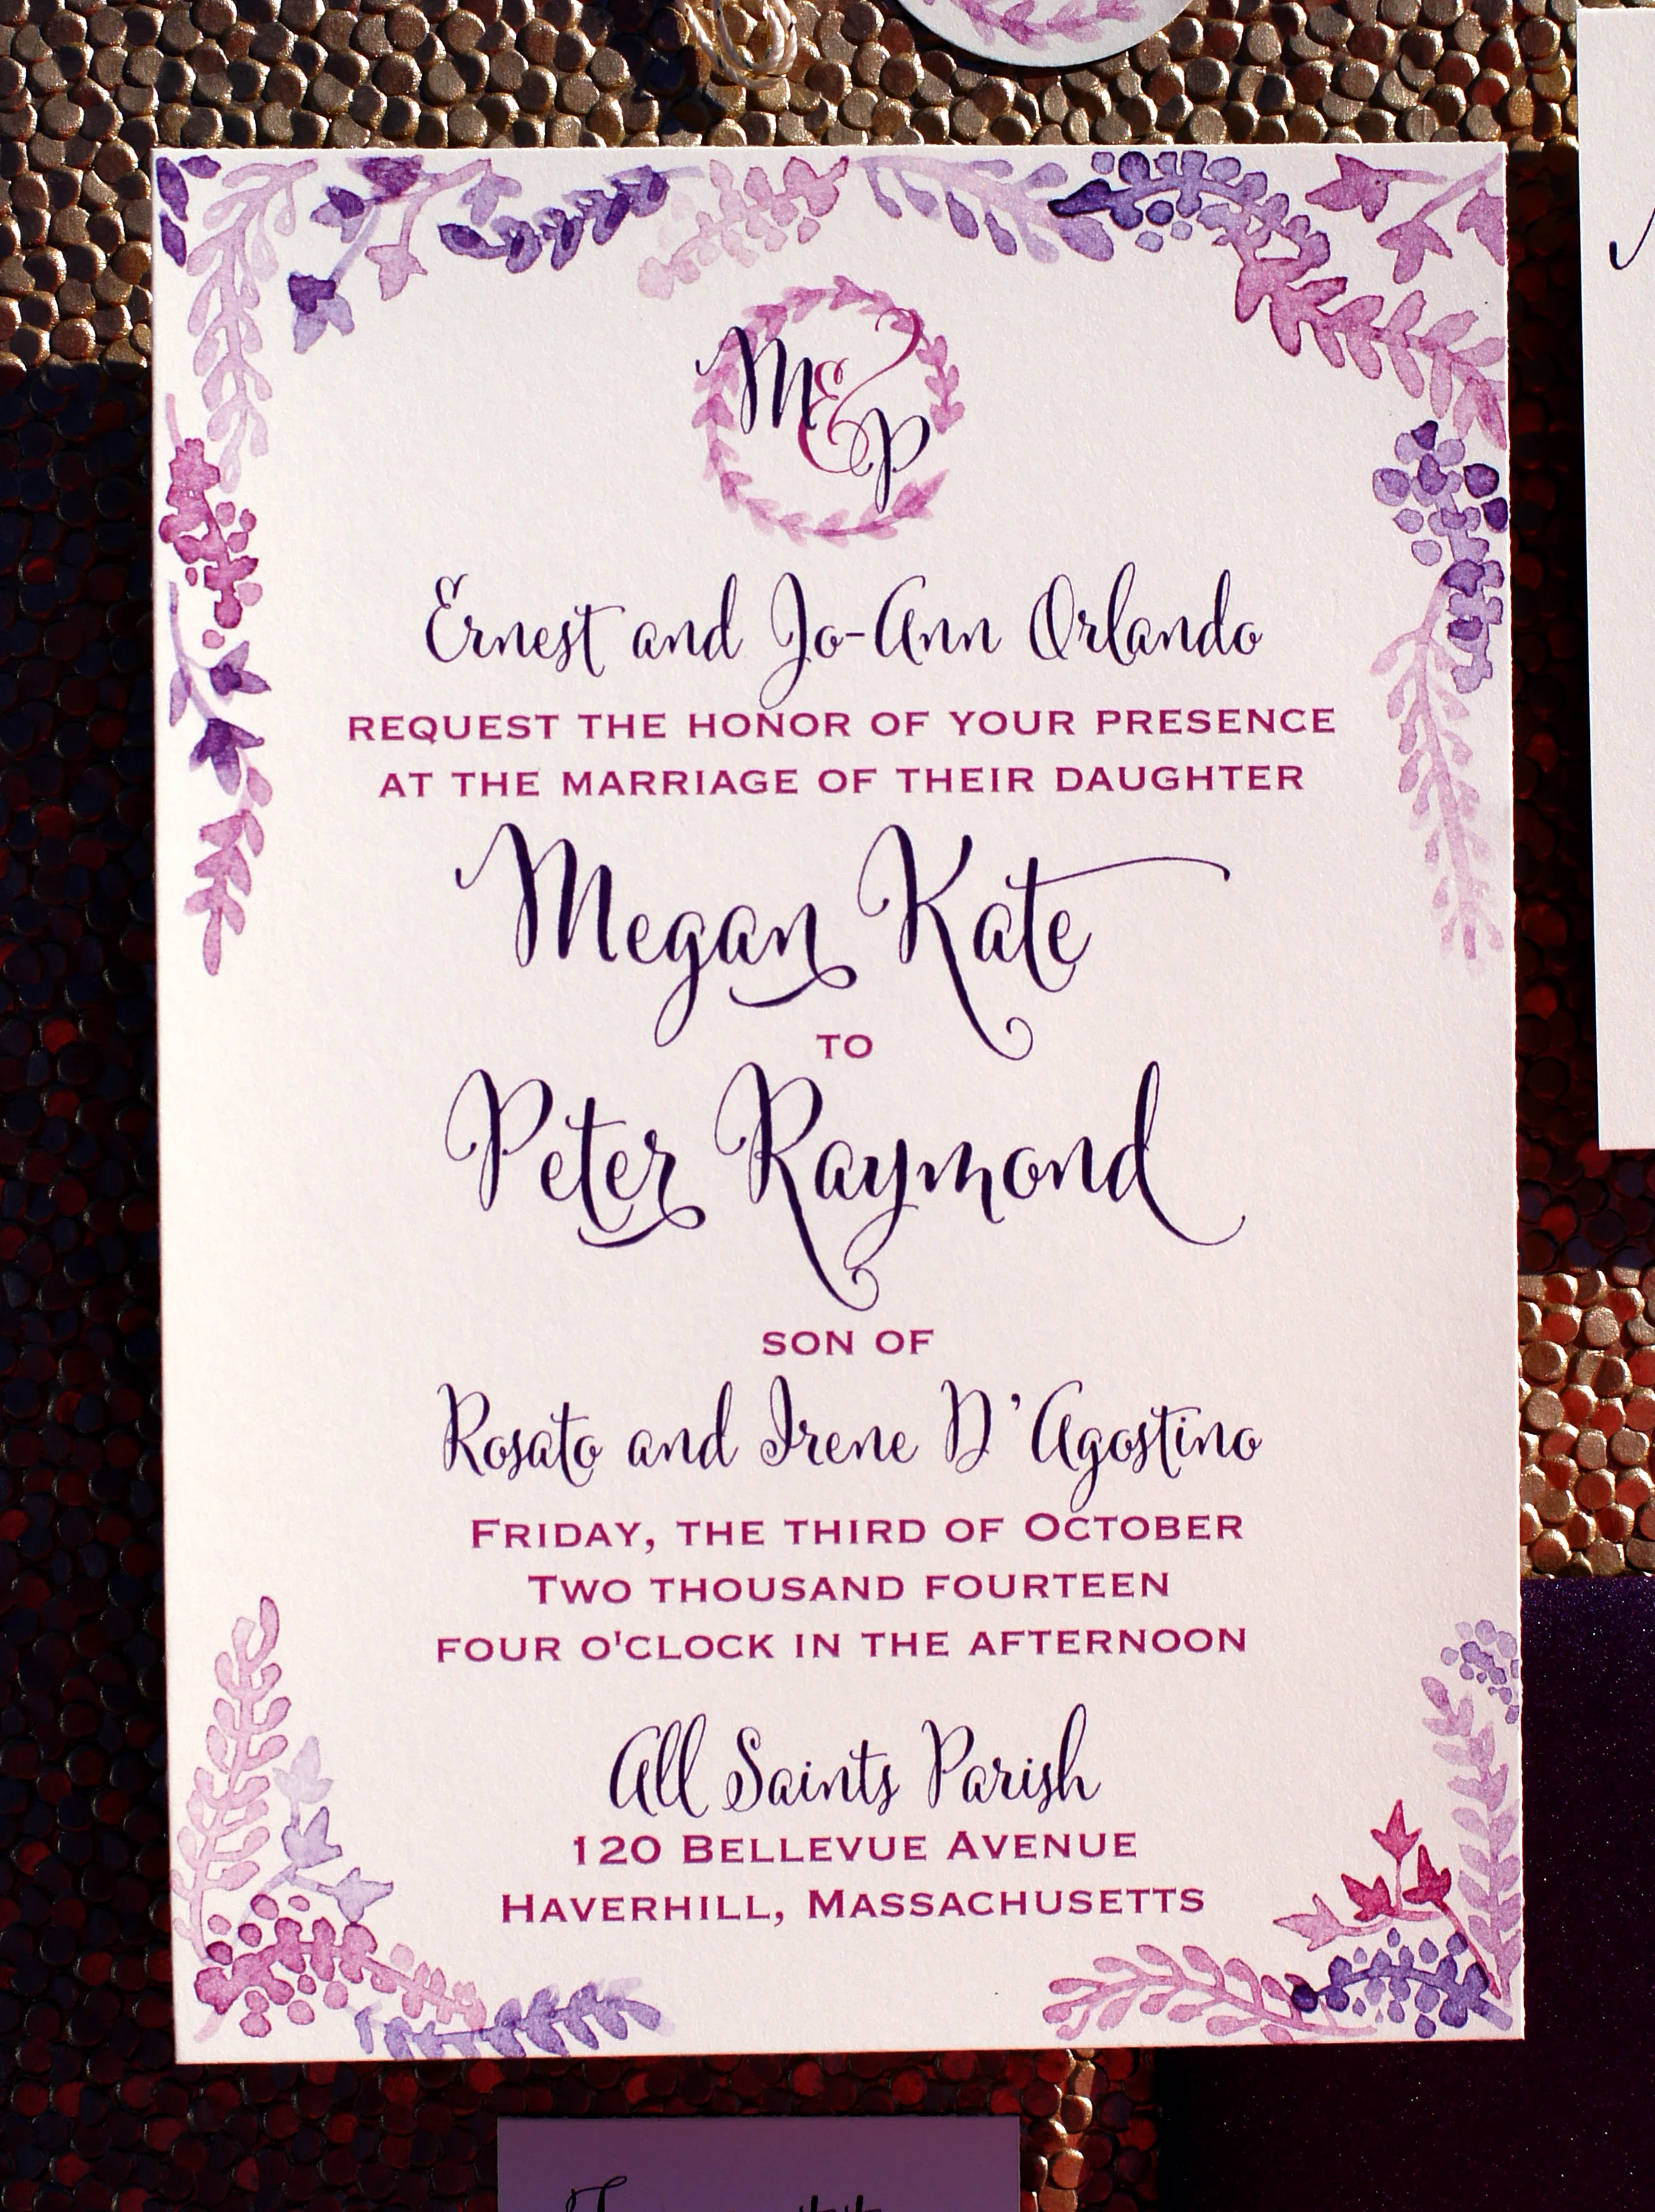 M & P
Ernest and Jo-Ann Orlando
REQUEST THE HONOR OF YOUR PRESENCE
AT THE MARRIAGE OF THEIR DAUGHTER
Megan Kate
TO
Peter Raymond
SON OF
Rosato and Irene D'Agostino
FRIDAY, THE THIRD OF OCTOBER
TWO THOUSAND FOURTEEN
FOUR O'CLOCK IN THE AFTERNOON
All Saints Parish
120 BELLEVUE AVENUE
HAVERHILL, MASSACHUSETTS